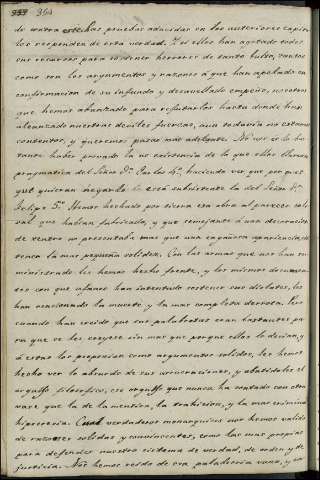 364
de contra estas pruebas aducidas en los anteriores capitu
los responden de esta verdad. Y si ellos han agotado todos
sus recursos para sostener herrores de tanto bulto, cuantos
como son los argumentos y razones á que han apelado en
confirmacion de su infundo y descabellado empeño, nosotros
que hemos abanzado para refutarlos hasta donde han
alcanzado nuestras debiles fuerzas, aun todavia no estamos
contentos, y queremos pasar mas adelante. No nos es lo bas
tante haber provado la no existencia de la que ellos llaman
pragmatica del Señor Dn. Carlos 4º, haciendo ver que por mas
que quieran negarlo está subsistente la del Señor Dn.
Felipe 5º. Hemos hechado por tierra esa obra al parecer colo
sal que habian fabricado, y que semejante á una decoracion
de teatro no presentaba mas que una engañosa apariencia, sin
tener la mas pequeña solidez. Con las armas que nos han su
ministrado les hemos hecho frente, y los mismos documen
tos con que ufanos han intentado sostener sus dislates, les
han ocasionado la muerte y la mas completa derrota. Pero
cuando han creido que sus palabrotas eran bastantes pa
ra que se les creyese sin mas que porque ellos lo decian, y
á estas las proponian como argumentos solidos, les hemos
hecho ver lo absurdo de sus aseveraciones, y abatidoles el
orgullo filosofico, ese orgullo que nunca ha contado con otra
base que la de la mentira, la trahicion, y la mas criminal
hipocresia. Cual verdaderos monarquicos nos hemos valido
de razones solidas y convincentes, como las mas propias
para defender nuestro sistema de verdad, de orden y de
justicia. Nos hemos reido de esa palabreria vana, y